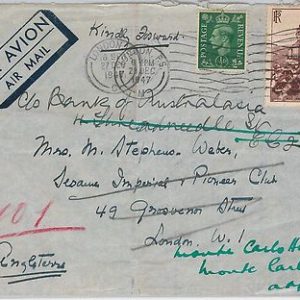 AVION
AIR MAIL
Kindly Forward
LONDON F.S.
27 DEC
1947
POSTAGE
REVENUE
RF
c/o Bank of Australasia
4 Threadneedle St
E.C.2
Mrs. M. Stephens-Weber,
Sesame Imperial & Pioneer Club
49 Grosvenor Street
London. W.1
101
Angleterre
Monte Carlo
Monte Carlo